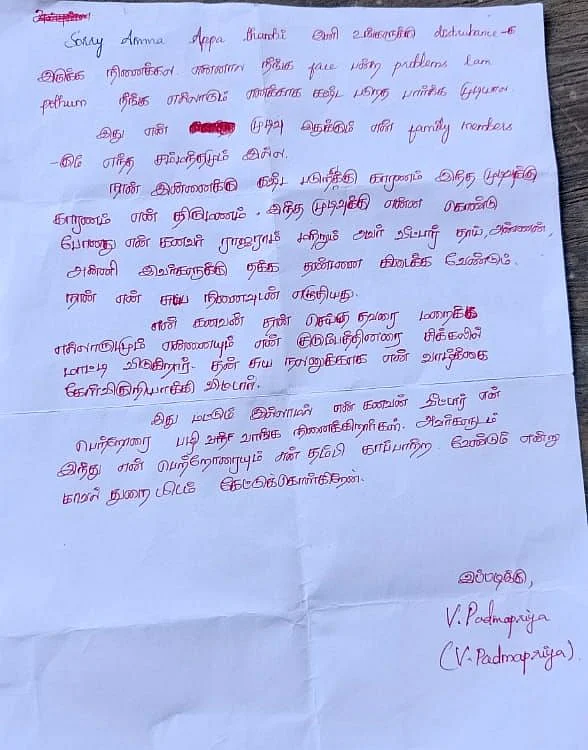 Sorry Amma Appa thambi இனி உங்களுக்கு disturbance-க
இருக்க நினைக்கல. என்னால நீங்க face பண்ற problems lam
pothum நீங்க எல்லாரும் எனக்காக கஷ்ட படுறத பார்க்க முடியல.
இது என் முடிவு இதுக்கும் என் family members
-க்கும் எந்த சம்பந்தமும் இல்ல.
நான் இன்னைக்கு கஷ்ட படுறதுக்கு காரணம் இந்த முடிவுக்கு
காரணம் என் திருமணம். இந்த முடிவுக்கு என்ன கொண்டு
போனது என் கணவர் ராஜாராம் மற்றும் அவர் வீட்டார் தாய், அண்ணன்,
அண்ணி இவர்களுக்கு தக்க தண்டனை கிடைக்க வேண்டும்.
நான் என் சுய நினைவுடன் எழுதியது.
என் கணவன் தான் செய்த தவறை மறைக்க
எல்லாருமும் என்னையும் என் குடும்பத்தினரை சிக்கலில்
மாட்டி விடுகிறார். தன் சுய நலனுக்காக என் வாழ்க்கை
கேள்விகுறியாக்கி விட்டார்.
இது மட்டும் இல்லாமல் என் கணவன் வீட்டார் என்
பெற்றோரை பழி வாங்க நினைக்கிறார்கள். அவர்களிடம்
இருந்து என் பெற்றோரையும் என் தம்பி காப்பாற்ற வேண்டும் என்று
காவல் துறையிடம் கேட்டுக்கொள்கிறேன்.
இப்படிக்கு,
V. Padmapriya
(V. Padmapriya).